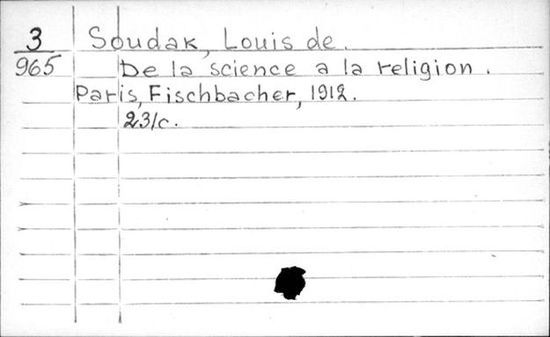 3 Soudak, Louis de.
965 De la science a la religion.
Paris, Fischbacher, 1912.
231c.